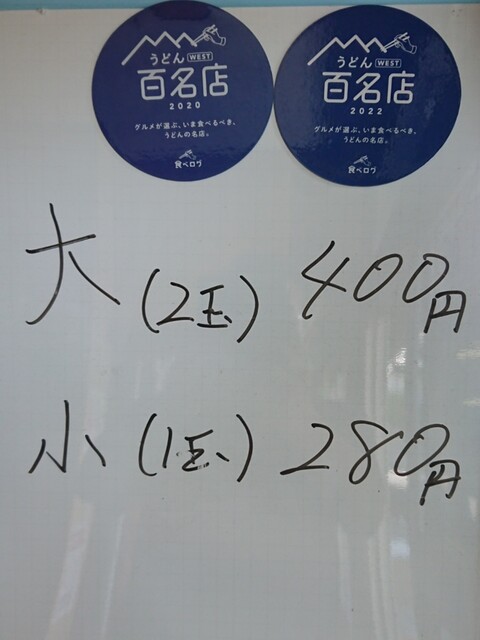 うどん WEST
百名店
2020
グルメが選ぶ、いま食べるべき、
うどんの名店。
食べログ
うどん WEST
百名店
2022
グルメが選ぶ、いま食べるべき、
うどんの名店。
食べログ
大 (2玉) 400円
小 (1玉) 280円